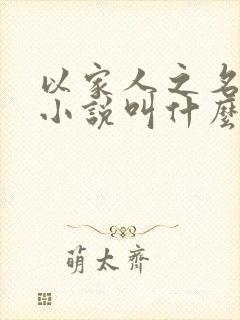 以家人之名
小说叫什麼
萌太齊